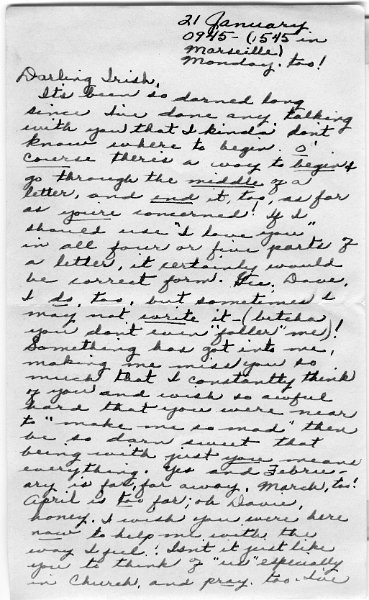 21 January
0945 - (1545 in
Marseille)
Monday, too!
Darling Irish,
It's been so darned long
since I've done any talking
with you that I kinda don't
know where to begin. O'
course there's a way to begin &
go through the middle of a
letter, and end it, too, as far
as you're concerned! If I
should use "I love you"
in all four or five parts of
a letter, it certainly would
be correct form. Gee, Dave,
I do, too, but sometimes I
may not write it - (betcha
you don't even "foller" me)!
Something has got into me,
making me miss you so
much that I constantly think
of you and wish so awful
hard that you were near
to "make me so mad" then
be so darn sweet that
being with just you means
everything. Yes and Febru-
ary is far, far away. March, too!
April is too far; oh Davie,
honey, I wish you were here
now to help me with the
way I feel! Isn't it just like
you to think of "us" especially
in Church, and pray, too. I've